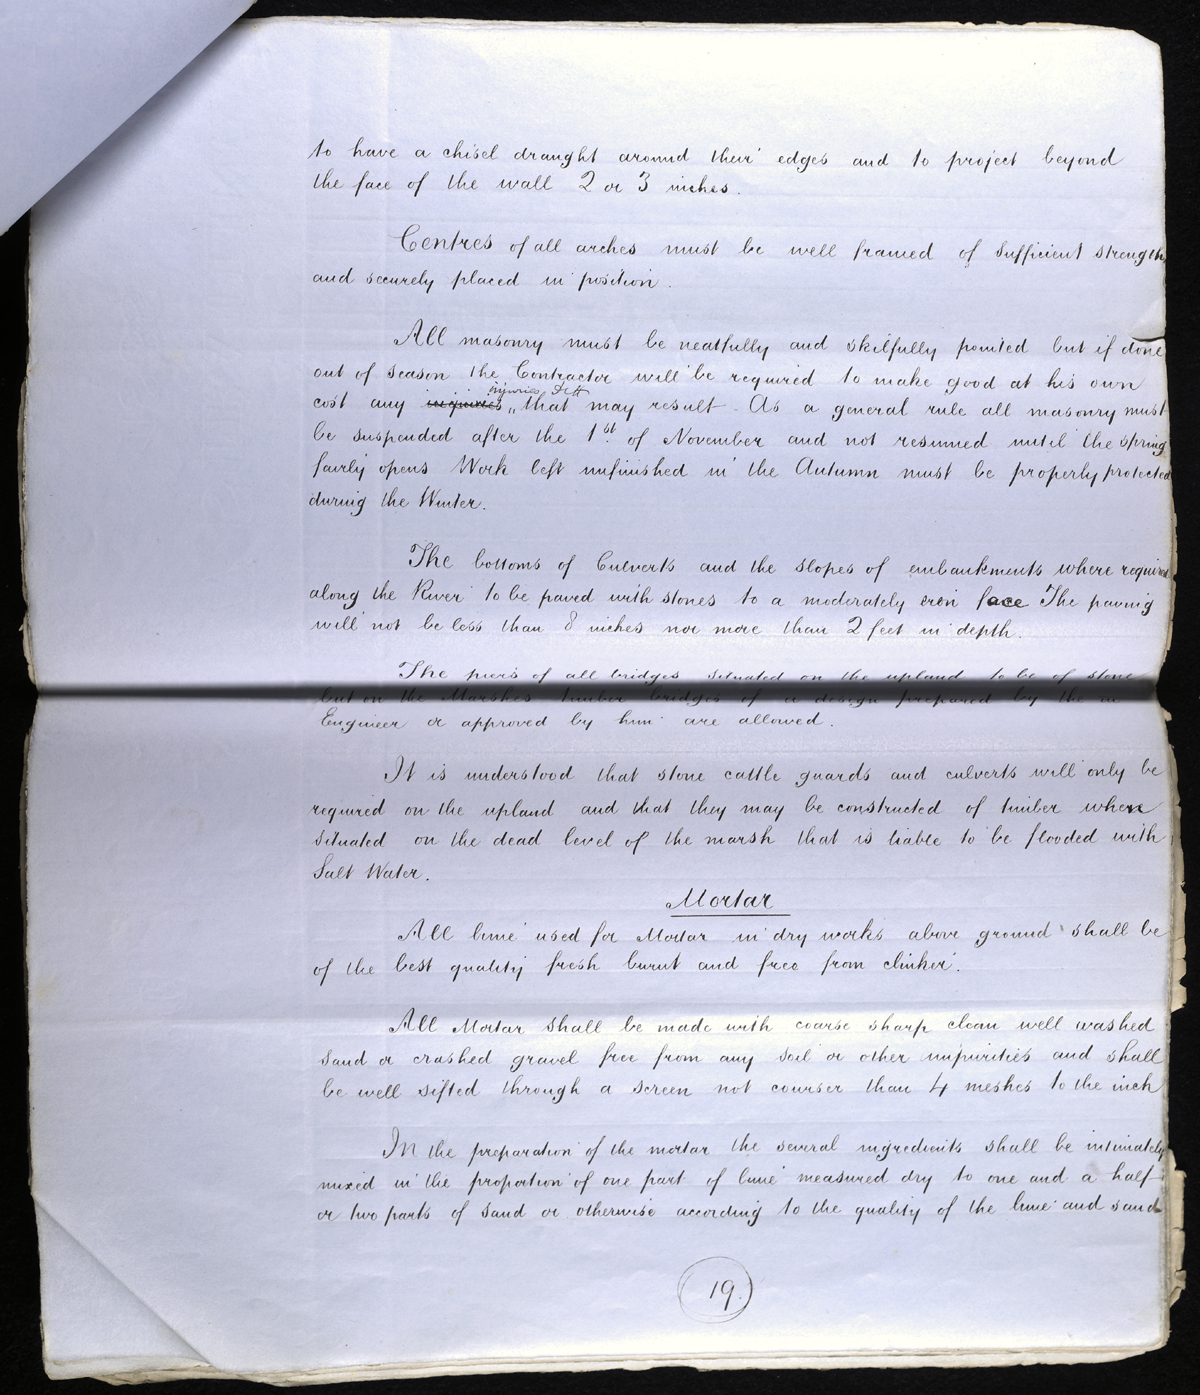 to have a chisel draught around their edges and to project beyond
the face of the wall 2 or 3 inches.
Centres of all arches must be well framed of sufficient strength
and securely placed in position.
All masonry must be neatfully and skilfully pointed but if done
out of season the Contractor will be required to make good at his own
injuries
cost any that may result - As a general rule all masonry must
be suspended after the 1st. of November and not resumed until the spring
fairly opens Work left unfinished in the Autumn must be properly protected
during the Winter.
The bottoms of Culverts and the slopes of embankments where required
along the River to be paved with stones to a moderately even face The paving
will not be less than 8 inches nor more than 2 feet in depth.
The piers of all bridges situated on the upland to be of stone
but on the Marshes timber bridges of a design prepared by the
Engineer or approved by him are allowed.
It is understood that stone cattle guards and culverts will only be
required on the upland and that they may be constructed of timber where
situated on the dead level of the marsh that is liable to be flooded with
Salt Water.
Mortar
All lime used for Mortar in dry works above ground shall be
of the best quality fresh burnt and free from clinker.
All Mortar shall be made with coarse sharp clean well washed
sand or crashed gravel free from any soil or other impurities and shall
be well sifted through a screen not courser than 4 meshes to the inch
In the preparation of the mortar the several ingredients shall be intimately
mixed in the proportion of one part of lime measured dry to one and a half
or two parts of sand or otherwise according to the quality of the lime and sand
19.